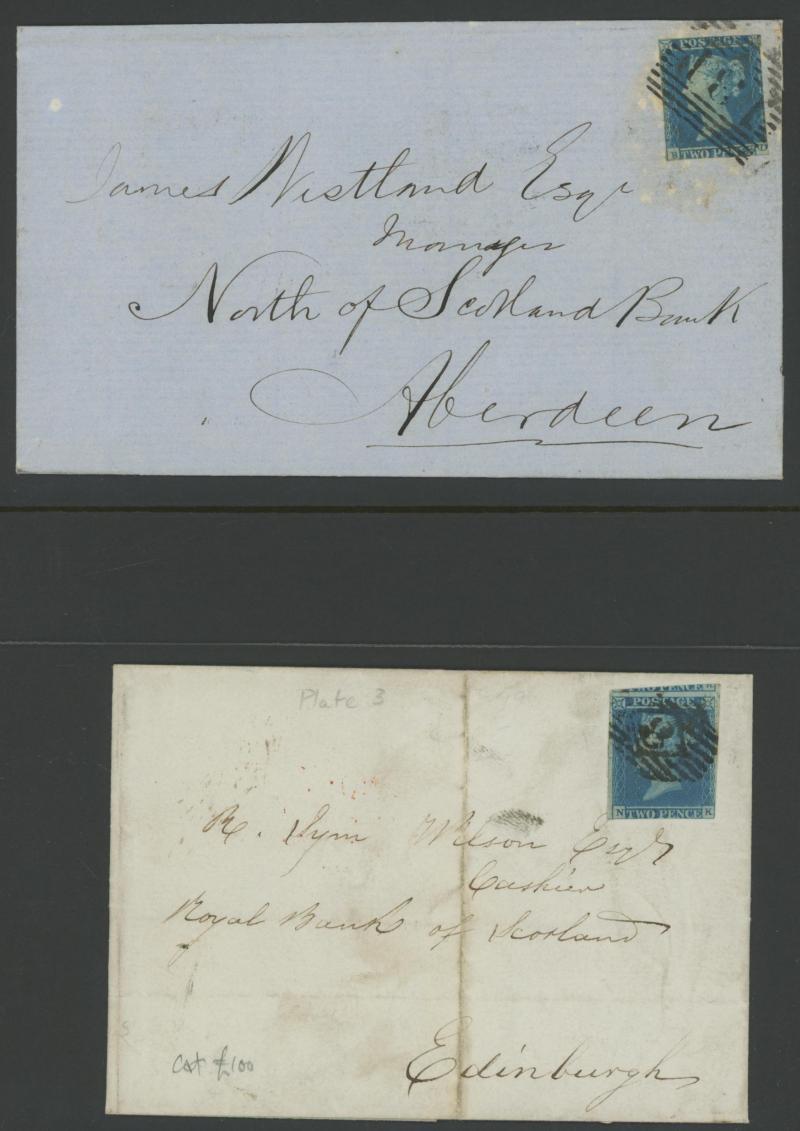 POSTAGE
TWO PENCE
James Westland Esqr
Manager
North of Scotland Bank
Aberdeen
Plate 3
TWO PENCE
POSTAGE
N TWO PENCE K
R. Sym Wilson Esqr
Cashier
Royal Bank of Scotland
Edinburgh
Cat £100